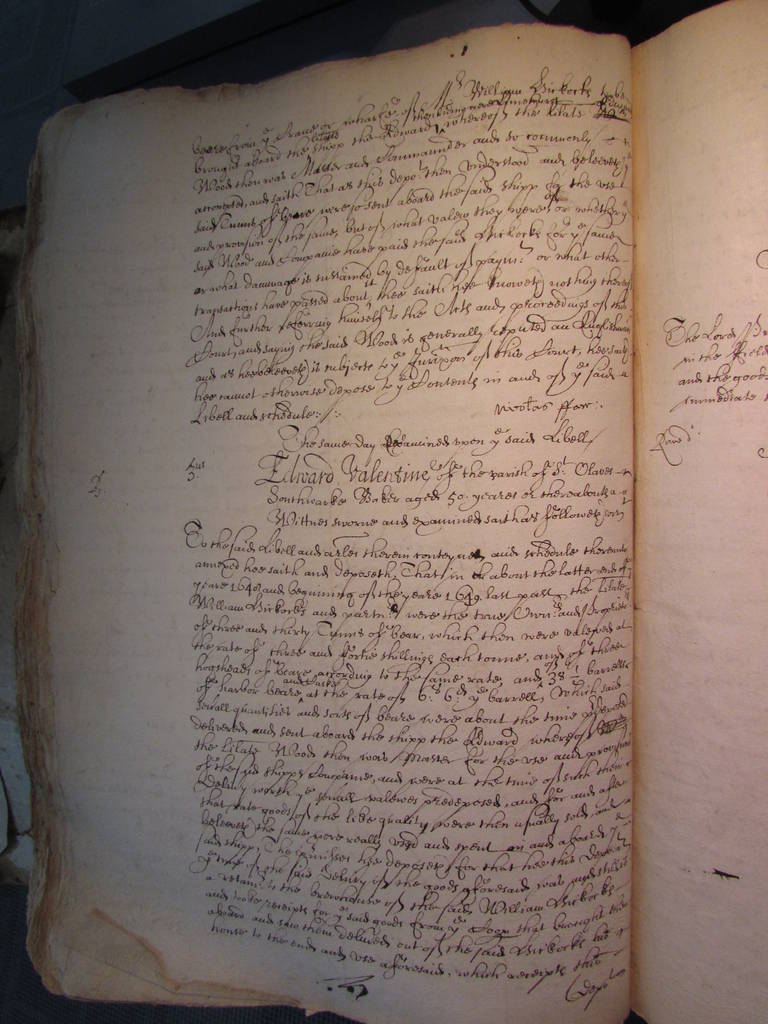 beere from ye Crane or wharfe of William Hickocks to be
brought aboard the shipp the Edward whereof the litate
Wood then was Master and Commannder and so commonly
accompted, and saith That as this depot then understood and beleeveth
said Tunns of beere were so sent aboard the said shipp for the use
and provision of the same, but of what valew they were or whether ye
said Wood and Companie have paid the said Hickocks for ye same
or what dammage is sustained by default of paymt or what other
transactions have passed about it hee saith hee knoweth nothing thereof
And further referring himselfe to the Acts and proceedings of this
Court, and saying the said Wood is generally reputed an Englishman
and as hee beleeveth is subject to ye Jurisdon of this Court, hee saith
hee cannot otherwise depose to ye Contents in and of ye said
Libell and schedule:/:
Nicolas ffox:
The same day Examined upon ye said Libell
Edward Valentine of the parish of St Olaves
Southwarke Baker aged 50. yeares or thereabouts a
Wittnes sworne and examined saith as followeth
To the said Libell and arles therein conteyned and schedule thereunto
annexed hee saith and deposeth, That in or about the latter end of ye
yeare 1648 and beginning of the yeare 1649 last past the litate
William Hickocks and partnrs were the true Ownrs and Proprietrs
of three and thirty Tunns of bear, which then were valewed at
the rate of three and fortie shillings each tonne, and of three
hogsheads of Beare according to the same rate, and of 38 barrells
of harbor beare at the rate of 6s 6d ye barrell, Which said
severall quantities and sorts of beare were about the time predeposed
delivered and sent aboard the shipp the Edward whereof
the litate Wood then was Master for the use and provision
of the said shipps Companie, and were at the time of such their
Delivery worth ye severall valewes predeposed, and for and after
that rate goods of the like quality were then usually sold, and
beleeveth the same were really used and spent in and aboard ye
said shipp, The premisses hee deposeth for that hee this Deponent
ye time of the said Delivry of the goods aforesaid was and still is
a retainr to the brewhouse of the said William Hickocks
and tooke receipts for ye said goods from ye that brought them
aboard and saw them delivred out of the said Hickocks his
house to the ends and use aforesaid, which receipts this
Depot
The Lord Pr
in the ffeild
and the goods
immediate